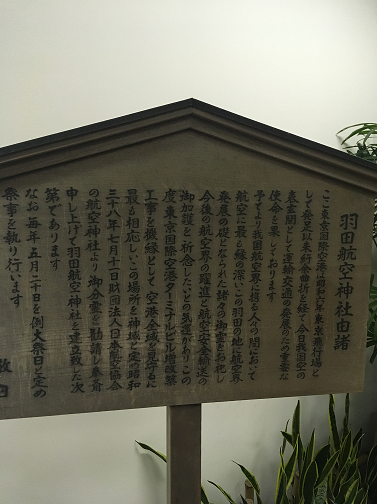 羽田航空神社由緒
ここ東京国際空港は昭和六年東京飛行場と
して発足以来紆余曲折を経て今日我国空の
表玄関として運輸交通の発展のため重要な
使命を果しております
予てより我国航空業に携る人々の間において
航空に最も縁の深いこの羽田の地に航空界
発展の礎となられた諸々の御霊をお祀し
今後の航空界の躍進と航空安全輸送の
御加護を祈念したいとの気運があり この
度東京国際空港ターミナルビル増改築
工事を機縁として 空港全域が見守るに
最も相応しいこの場所を神域と定め昭和
三十八年七月十一日財団法人日本航空協会
の航空神社より 御分霊を勧請し奉斎
申し上げて羽田航空神社を建立致した次
第であります
なお 毎年 五月二十日を例大祭日と定め
祭事を執り行います
敬白